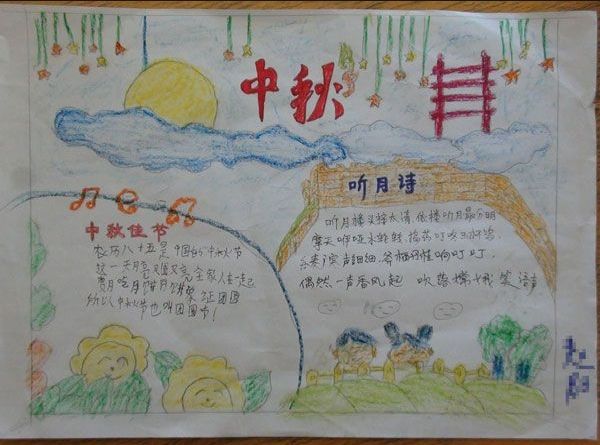 中秋
中秋佳节
农历八十五是中国的中秋节
这一天月亮又圆又亮 全家人在一起
赏月吃月饼月饼象征团圆
所以中秋节也叫团圆节！
听月诗
听月楼头接太清 依楼听月最分明
摩天咿哑冰轮转，捣药叮咚玉杵鸣
乐奏广寒声细细，斧柯丹桂响叮叮
偶然一声香风起 吹落嫦娥笑语声